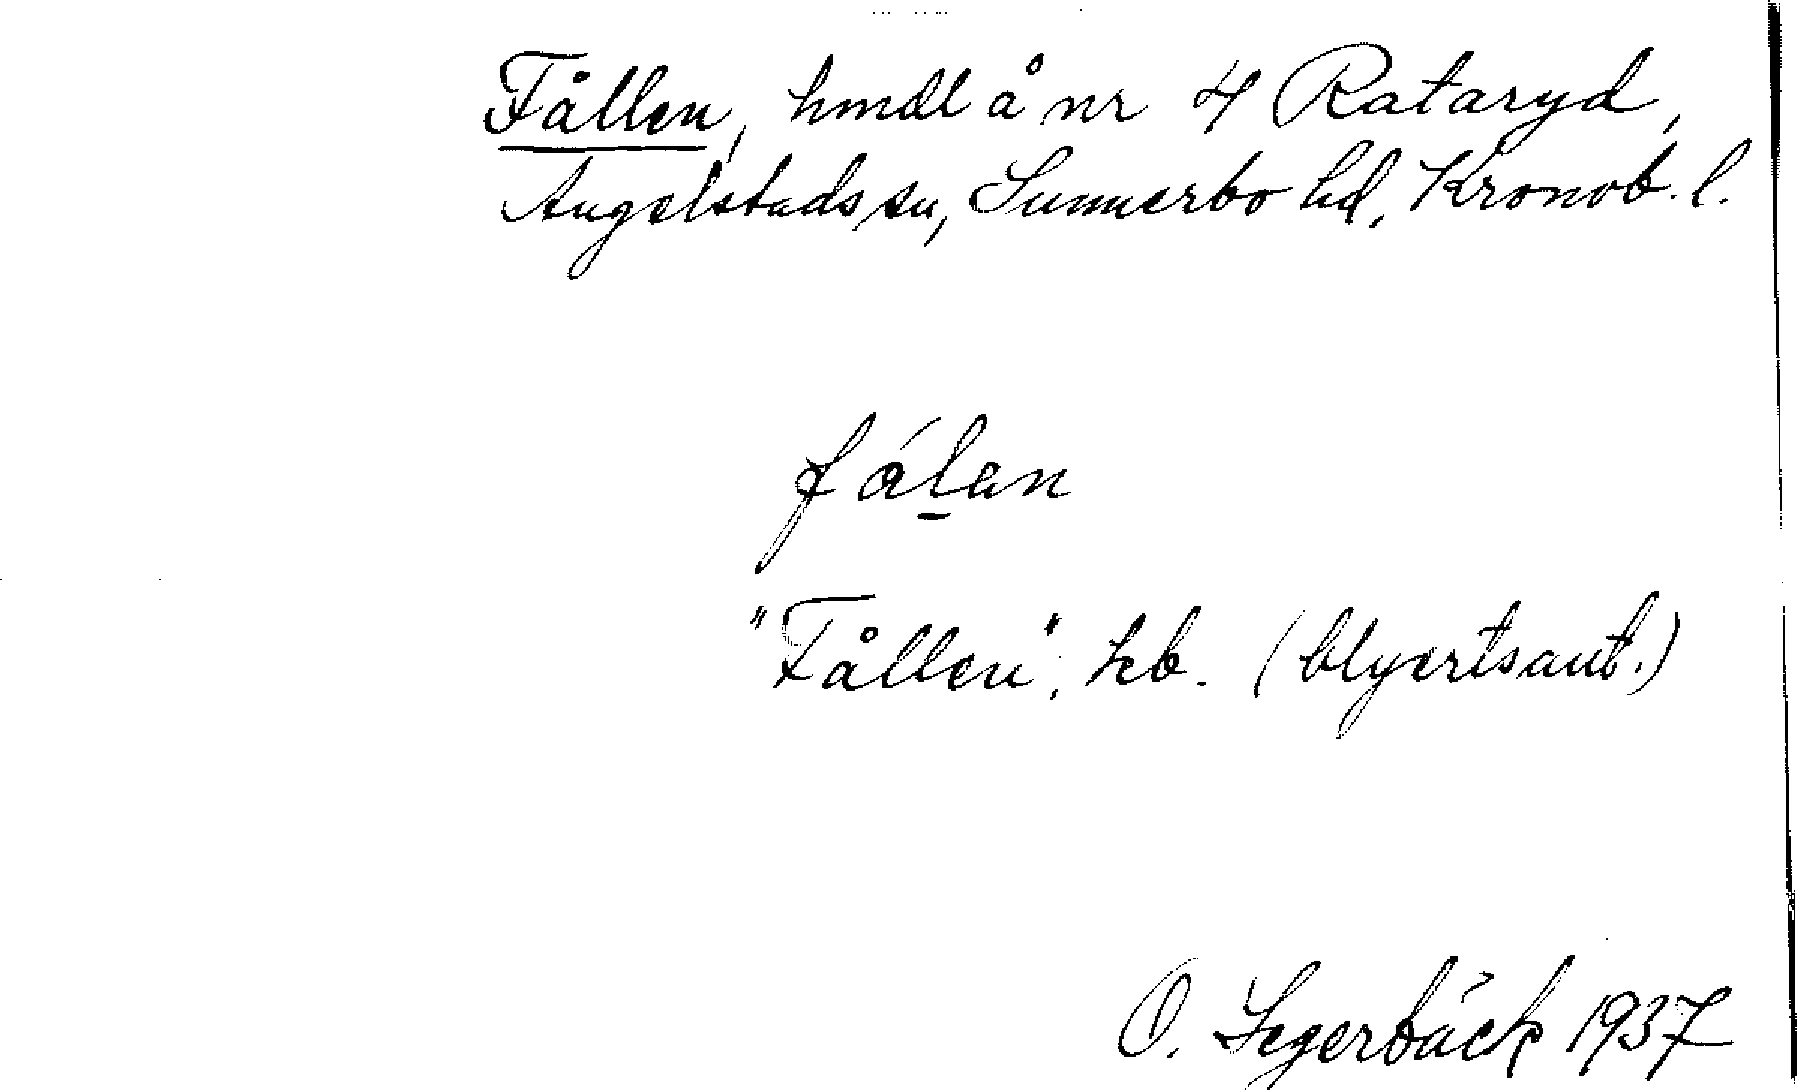 Fållen, hmdl å nr 4 Rataryd,
Angelstads sn, Sunnerbo hd, Kronob. l.
fála̲n
"Fållen", kb. (blyertsant.)
O. Segerbäck 1937